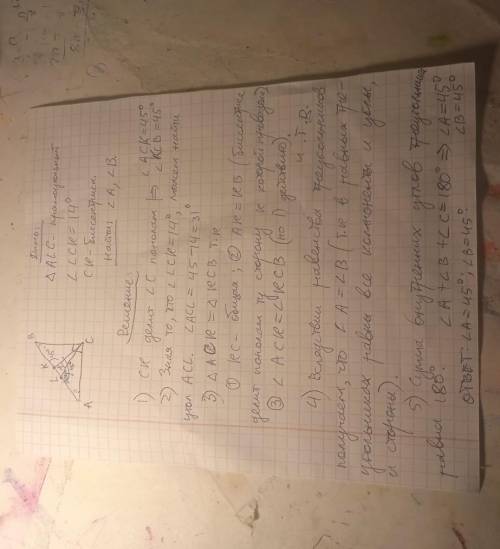 Дано:
△ALC - прямоугольный
∠LCK = 14°
CK - биссектриса.
Найти: ∠A, ∠B.
B
K
L
A
C
Решение:
1) CK делит ∠C пополам ⇒ ∠ACK = 45°
∠KCB = 45°
2) Зная то, что ∠LCK = 14°, можем найти
угол ACL. ∠ACL = 45 - 14 = 31°
3) △ACK = △KCB т.к
① KC - общая; ② AK = KB (биссектрисе
делит пополам ту сторону к которой проведена);
③ ∠ACK = ∠KCB (по 1) действию).
4) Вследствии равенства треугольников
получаем, что ∠A = ∠B (т.к в равных тре-
угольниках равны все компоненты и углы,
и стороны).
5) Сумма внутренних углов треугольника
равна 180°. ∠A + ∠B + ∠C = 180° ⇒ ∠A = 45°
∠B = 45°
Ответ: ∠A = 45°; ∠B = 45°